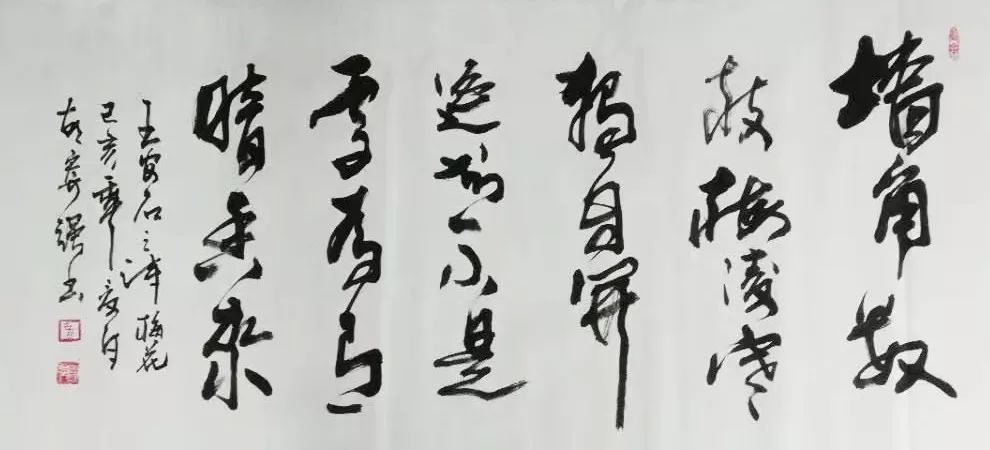 墙角数
枝梅凌寒
獨自開
遥知不是
雪為有
暗香來
王安石之 梅花
己亥年夏
强书